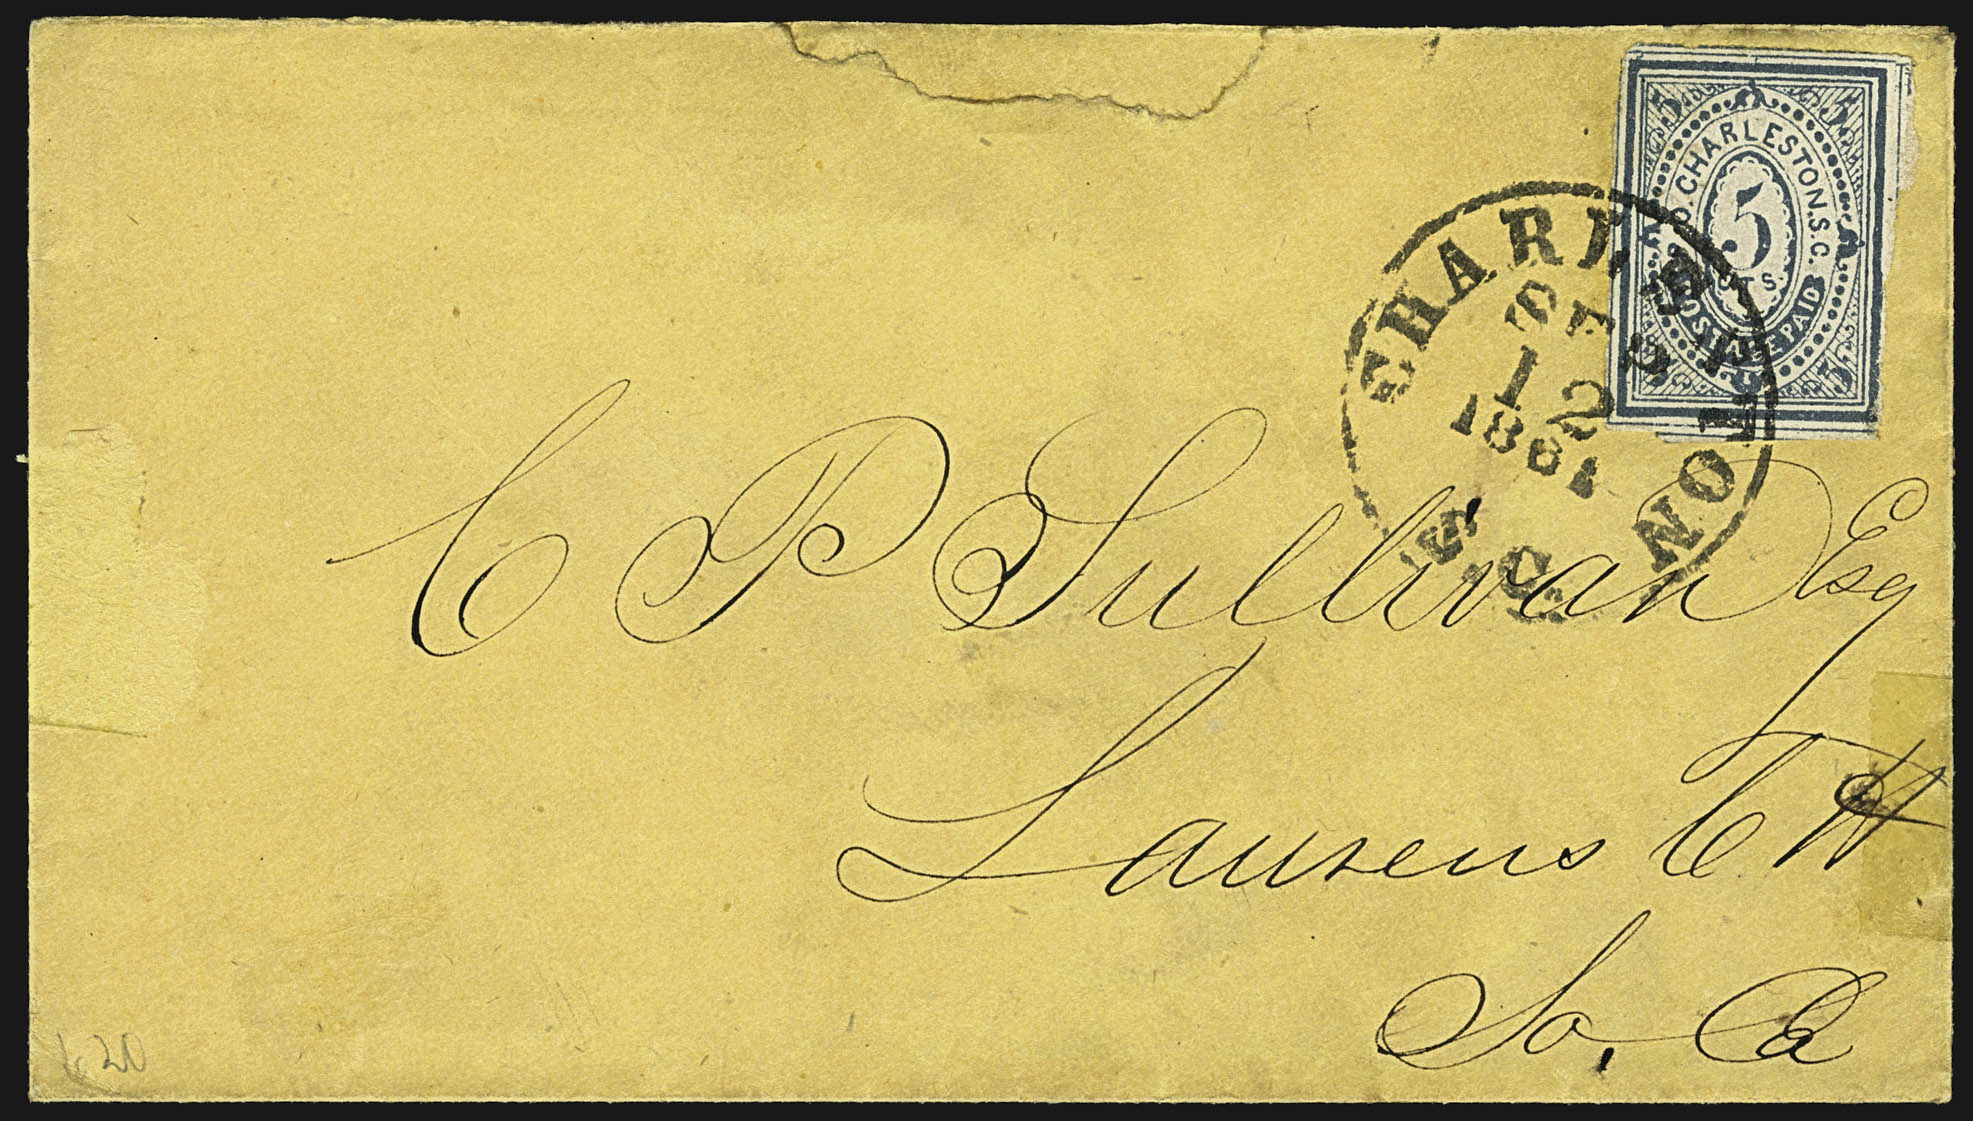 P.O. CHARLESTON. S.C.
5 5
5
CTS
POSTAGE PAID
5 5
CHARLESTON
S.C.
12
1861
C P Sullivan Esq
Laurens C H
So. Ca